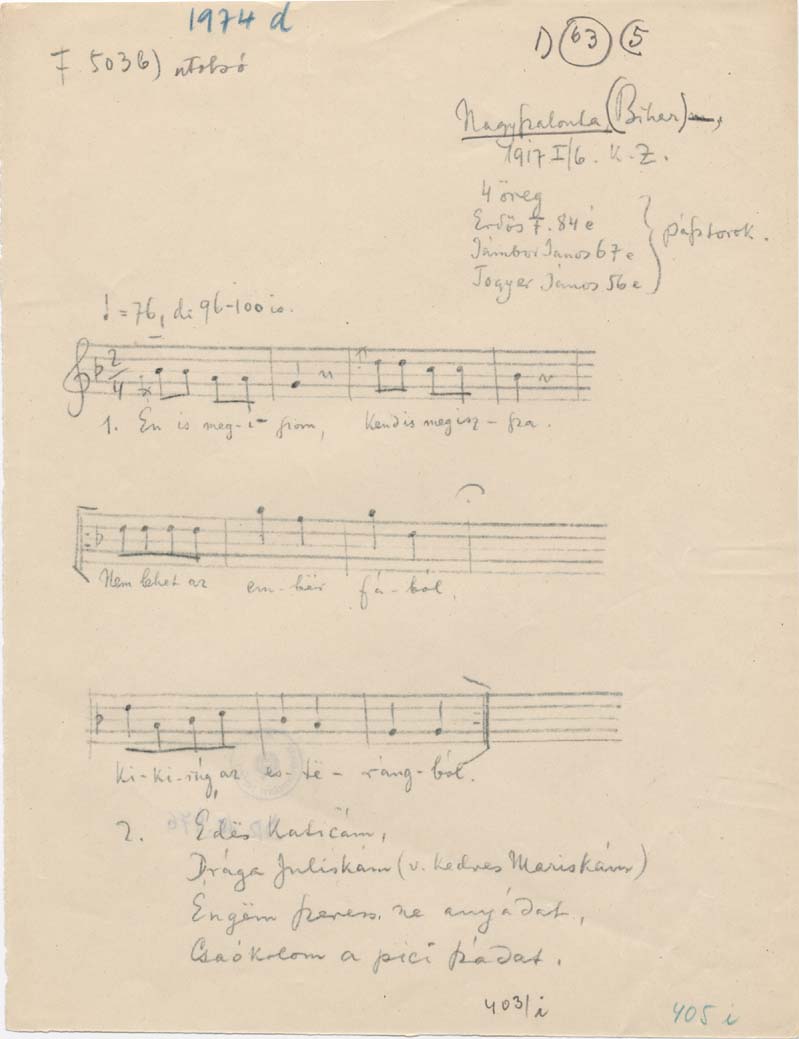 1974 d
F 503 b) utolsó
1) 63 5
Nagyszalonta (Bihar),
1917 I/6. K. Z.
4 öreg
Erdős F. 84 é
Jámbor János 67 e
Togyer János 56 e
pásztorok.
♩ = 76, de 96-100 is.
2/4
1. Én is meg-i-szom, Kend is megisz-sza.
Nem lehet az em-bër fá-ból,
Ki-ki-rúg az es-të-ráng-ból.
2. Édës Katicám,
Drága Juliskám (v. kedves Mariskám)
Éngëm szeress, ne anyádat,
Csaókolom a pici szádat.
403/i
405 i